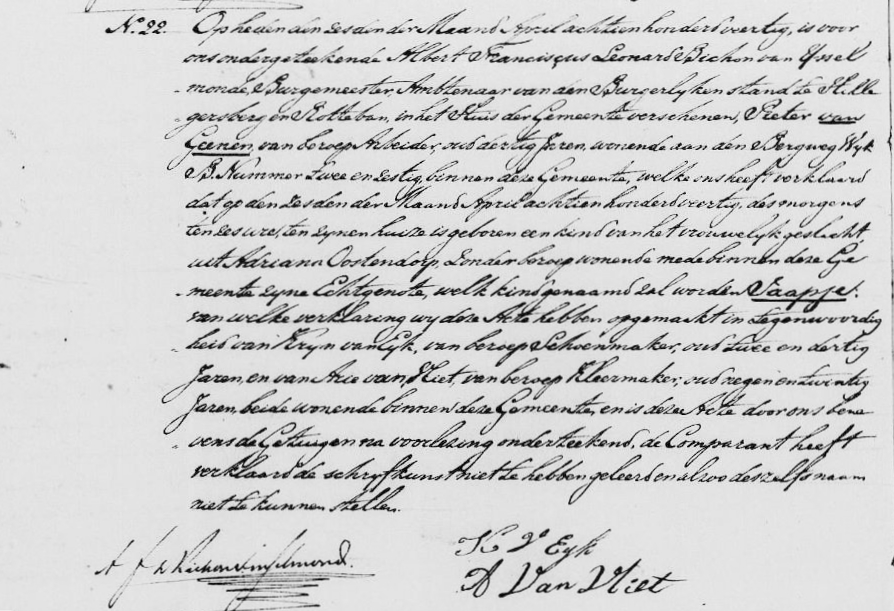 No. 22. Op heden den zesden der Maand April achtienhonderd veertig, is voor
ons ondergeteekende Albert Franciscus Leonard Bichon van Yssel
monde, Burgemeester, Ambtenaar van den Burgerlyken stand te Hille
gersberg en Rotteban, in het Huis der Gemeente verschenen, Pieter van
Geenen, van beroep Arbeider, oud dertig Jaren, wonende aan den Bergweg Wyk
B. Nummer twee en zestig, binnen deze Gemeente, welke ons heeft verklaard
dat op den zesden der Maand April achtienhonderd veertig, des morgens
ten zes ure, ten zynen huize is geboren een kind van het vrouwelyk geslacht,
uit Adriana Oostendorp, zonder beroep wonende mede binnen deze Ge
meente zyne Echtgenote, welk kind genaamd zal worden Jaapje:
van welke verklaring wy deze Acte hebben opgemaakt in tegenwoordig
heid van Kryn van Eyk, van beroep Schoenmaker, oud twee en dertig
Jaren, en van Arie van Vliet, van beroep Kleermaker, oud negen en twintig
Jaren, beide wonende binnen deze Gemeente, en is deze Acte door ons bene
vens de Getuigen na voorlezing onderteekend, de Comparant heeft
verklaard de schryfkunst niet te hebben geleerd en alzoo deszelfs naam
niet te kunnen stellen.
K v Eyk
A Van Vliet